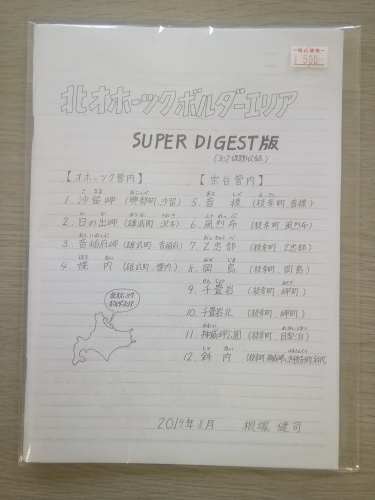 ¥500-
北オホーツクボルダーエリア
SUPER DIGEST版
(302課題収録)
【オホーツク管内】
1. 沙留岬 (興部町,沙留)
2. 日の出岬 (雄武町,沢木)
3. 音稲府岬 (雄武町,音稲府)
4. 幌内 (雄武町,幌内)
【宗谷管内】
5. 音標 (枝幸町,音標)
6. 風烈布 (枝幸町,風烈布)
7. 乙忠部 (枝幸町,乙忠部)
8. 岡島 (枝幸町,岡島)
9. 千畳岩 (枝幸町,岬町)
10. 千畳岩北 (枝幸町,岬町)
11. 神威岬公園 (枝幸町,目梨泊)
12. 斜内
北オホーツク
ボルダーエリア
2019年8月 根塚 健司